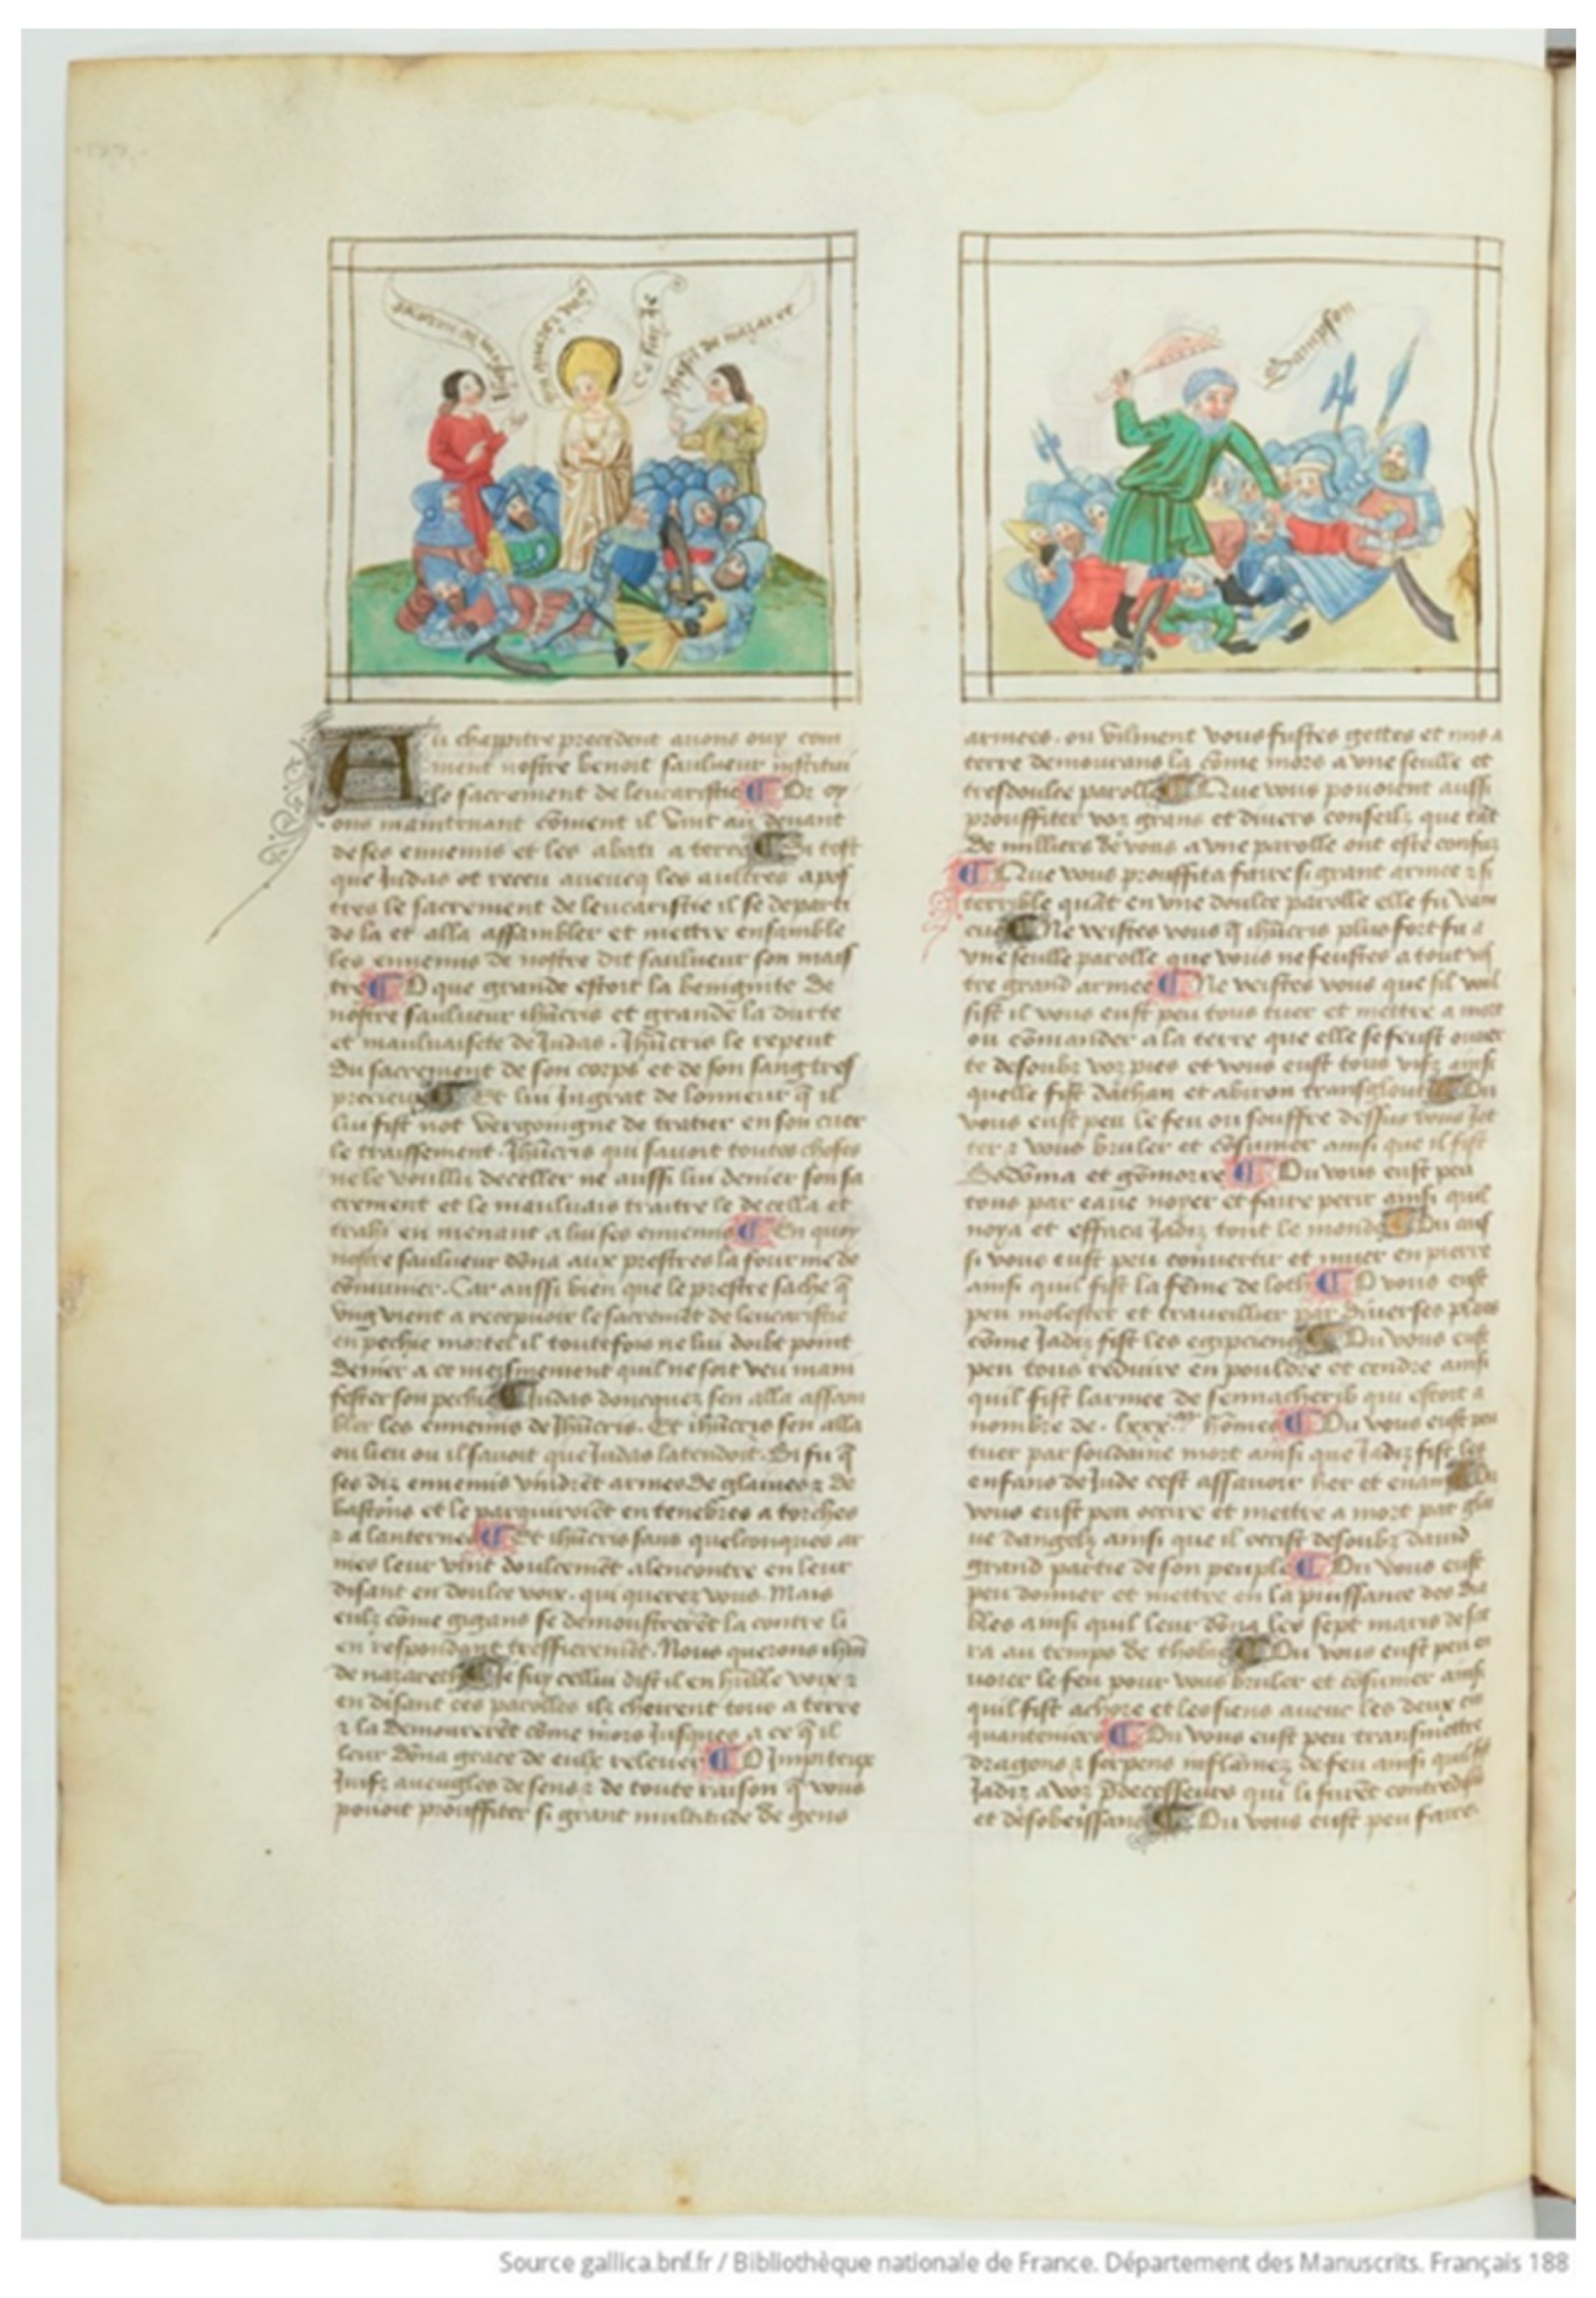 Jhesum de nazaret
qui querez vous
Ce suy je
Jhesus de nazaret
Sampson
Au chappitre precedent auons ouy com
ment nostre benoit saulueur institui
le sacrement de leucaristie ¶ Or oy
ons maintenant cōment il vint au deuant
de ses ennemis et les abati a terre ¶ Si tost
que Judas ot receu auecq les aultres apos
tres le sacrement de leucaristie il se departi
de la et alla assambler et mettre ensamble
les ennemis de nostre dit saulueur son mais
tre ¶ O que grande estoit la benignite de
nostre saulueur ihūcris et grande la durte
et mauluaisete de Judas. Jhūcris le repeut
du sacrement de son corps et de son sang tres
precieux ¶ Et lui Ingrat de lonneur q̄ il
lui fist not vergoigne de traiter en son cuer
le traissement. Jhūcris qui sauoit toutes choses
ne le voulli deceller ne aussi lui denier son sa
crement et le mauluais traitre le decella et
trahi en menant a lui ses ennemis ¶ En quoy
nostre saulueur dōna aux prestres la fourme de
cōmunier. Car aussi bien que le prestre sache q̄
vng vient a recepuoir le sacremēt de leucaristie
en pechie mortel il toutefois ne lui doibt point
denier a ce meismement quil ne soit veu mani
fester son pechie ¶ Judas doncquez sen alla assam
bler les ennemis de Jhūcris. Et ihūcris sen alla
ou lieu ou il sauoit que Judas latendoit. Si fu q̄
ses diz ennemis vindrēt armes de glaiues ⁊ de
bastons et le parquiroiēt en tenebres a torches
⁊ a lanternes ¶ Et ihūcris sans quelconques ar
mes leur vint doulcemēt alencontre en leur
disant en doulce voix. qui querez vous. Mais
eulz cōme gigans se demonstrerēt la contre li
en respondant tresfieremēt. Nous querons ihūm
de nazareth ¶ Je suy cellui dist il en hūble voix ⁊
en disant ces parolles ilz cheirent tous a terre
⁊ la demourerēt cōme mors Jusques a ce q̄ il
leur dōna grace de eulx releuer ¶ O Impiteux
Juifz aueugles de sens ⁊ de toute raison q̄ vous
pouoit prouffiter si grant multitude de gens
armees. ou vilment vous fustes gettes et mis a
terre demourans la cōme mors a vne seulle et
tresdoulce parolle ¶ Que vous pouoient aussi
prouffiter voz grans et diuers conseilz que tāt
de milliers de vous a vne parolle ont este confuz
¶ Que vous prouffita faire si grant armee ⁊ si
terrible quāt en vne doulce parolle elle fu vain
cue ¶ Ne veistes vous q̄ ihūcris plus fort fu a
vne seulle parolle que vous ne feustes a tout vos
tre grand armee ¶ Ne veistes vous que sil voul
sist il vous eust peu tous tuer et mettre a mort
ou cōmander a la terre que elle se feust ouuer
te desoubz voz pies et vous eust tous vifz ainsi
quelle fist dathan et abiron transglouti ¶ Ou
vous eust peu le feu ou souffre dessus vous Jet
ter ⁊ vous bruler et cōsumer ainsi que il fist
Sodōma et gōmorre ¶ Ou vous eust peu
tous par eaue noyer et faire perir ainsi quil
noya et effaca Jadiz tout le monde ¶ Ou aus
si vous eust peu conuertir et muer en pierre
ainsi quil fist la fēme de loth ¶ O vous eust
peu molester et trauueillier par diuerses plaies
cōme Jadiz fist les egipciens ¶ Ou vous eust
peu tous reduire en pouldre et cendre ainsi
quil fist larmee de sennacherib qui estoit a
nombre de . lxxx. hōmes ¶ Ou vous eust peu
tuer par souldaine mort ainsi que Jadiz fist les
enfans de Jude cest assauoir her et enam ¶ Ou
vous eust peu occire et mettre a mort par glai
ue dangelz ainsi que il occist desoubz dauid
grand partie de son peuple ¶ Ou vous eust
peu donner et mettre en la puissance des dia
bles ainsi quil leur dōna les sept maris de sa
ra au temps de thobie ¶ Ou vous eust peu en
uoier le feu pour vous bruler et cōsumer ainsi
quil fist achore et les siens auecr les deux cin
quanteniers ¶ Ou vous eust peu transmettre
dragons ⁊ serpens inflamez de feu ainsi quil fist
Jadiz a voz p̄decesseurs qui li furēt contredisans
et desobeissans ¶ Ou vous eust peu faire
Source gallica.bnf.fr / Bibliothèque nationale de France. Département des Manuscrits. Français 188